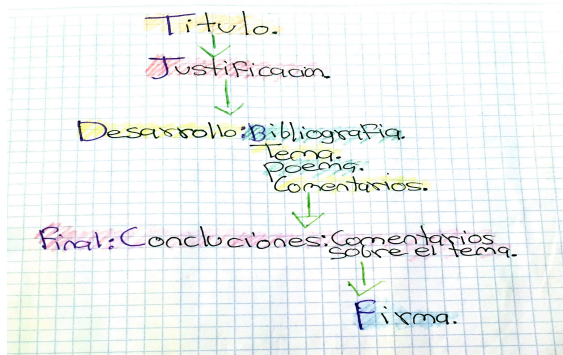 Titulo.
Justificacion.
Desarrollo: Bibliografia.
Tema.
Poema.
Comentarios.
Final: Concluciones: Comentarios
sobre el tema.
Firma.